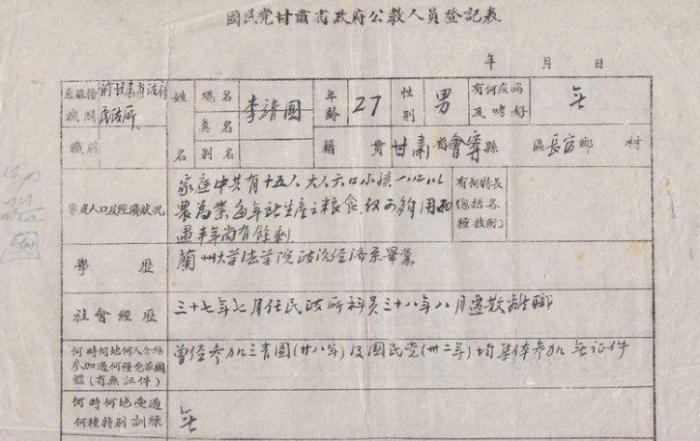 國民党甘肅省政府公教人員登記表
年 月 日
原服務機関 前甘肅省政府民政所
職別
姓名 現名 真名 别名 李靖國
年齡 27 性別 男 有何疾病及嗜好 无
籍貫 甘肅省會寧縣 區長 鄉 村
家庭人口及經濟狀况
家庭中共有十五人 大人六口 小孩 口 以
農為業 每年所生産之粮食 仅可夠用 如
遇丰年尚有餘剩
有何特長(包括各種技術)
學歷 蘭州大学法学院政治经济系畢業
社會經歷 三十七年七月任民政所科员 三十八年八月遣散離職
何時何地何人介紹參加過何種党派團體(有無証件)
曾经参加三青團(廿八年)及國民党(卅二年)均集体参加 无证件
何時何地受過何種特别訓練
无